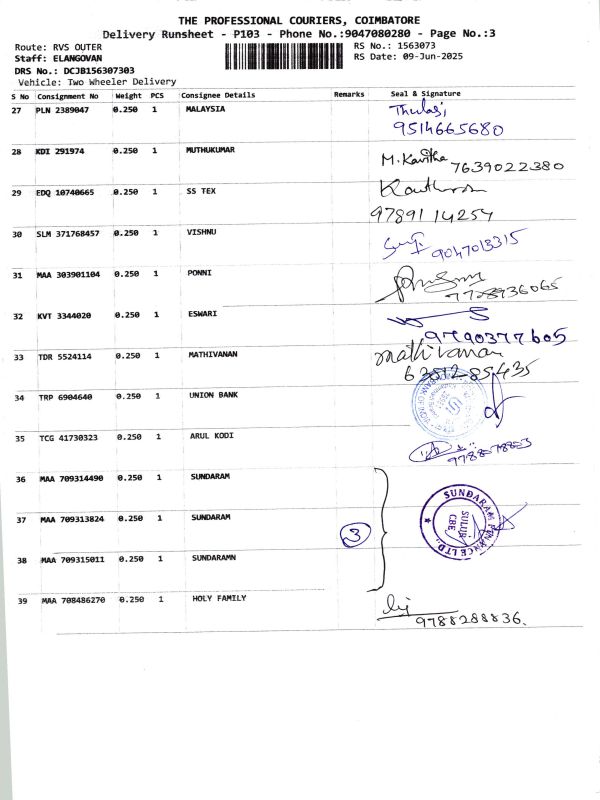 THE PROFESSIONAL COURIERS, COIMBATORE
Delivery Runsheet - P103 - Phone No.:9047080280 - Page No.:3
Route: RVS OUTER
RS No.: 1563073
Staff: ELANGOVAN
RS Date: 09-Jun-2025
DRS No.: DCJB156307303
Vehicle: Two Wheeler Delivery
S No Consignment No Weight PCS Consignee Details Remarks Seal & Signature
27 PLN 2389047 0.250 1 MALAYSIA Thulasi
9514665680
28 KDI 291974 0.250 1 MUTHUKUMAR M. Kavitha 7639022380
29 EDQ 10740665 0.250 1 SS TEX
9789114254
30 SLM 371768457 0.250 1 VISHNU 9047013315
31 MAA 303901104 0.250 1 PONNI
7728936065
32 KVT 3344020 0.250 1 ESWARI
9790377605
33 TDR 5524114 0.250 1 MATHIVANAN mathivanan
6381285435
34 TRP 6904640 0.250 1 UNION BANK
35 TCG 41730323 0.250 1 ARUL KODI
36 MAA 709314490 0.250 1 SUNDARAM
37 MAA 709313824 0.250 1 SUNDARAM 3 SUNDARAM FINANCE LTD SULUR CBE
38 MAA 709315011 0.250 1 SUNDARAMN
39 MAA 708486270 0.250 1 HOLY FAMILY
9788288836.